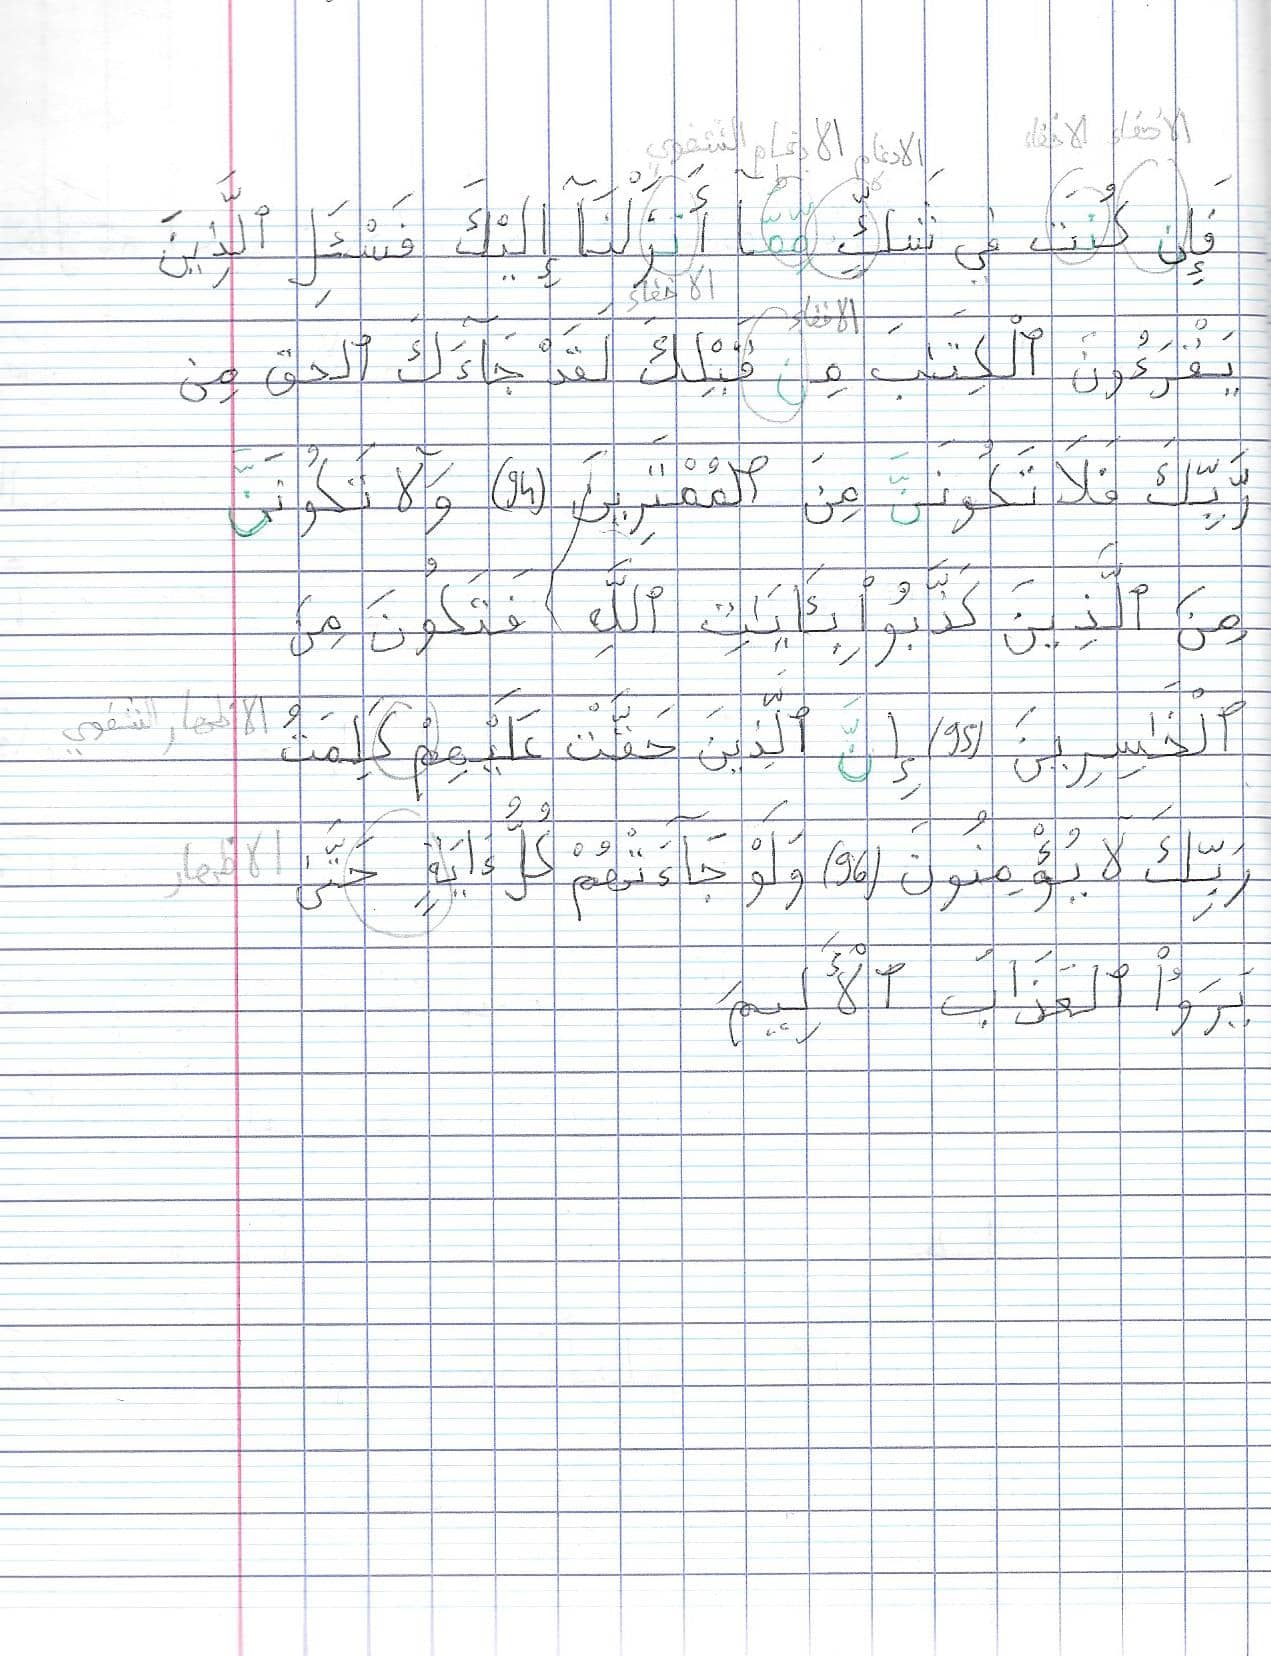 الاخفاء الاخفاء
الادغام الادغام الشفوي
فَإِن كُنتَ فِي شَكٍّ مِّمَّآ أَنزَلْنَآ إِلَيْكَ فَسْـَٔلِ ٱلَّذِينَ
الاخفاء
الاخفاء
يَقْرَءُونَ ٱلْكِتَـٰبَ مِن قَبْلِكَ لَقَدْ جَآءَكَ ٱلحق مِن
رَّبِّكَ فَلَا تَكُونَنَّ مِنَ ٱلْمُمْتَرِينَ (94) وَلَا تَكُونَنَّ
مِنَ ٱلَّذِينَ كَذَّبُوا۟ بِـَٔايَـٰتِ ٱللَّهِ فَتَكُونَ مِنَ
ٱلْخَـٰسِرِينَ (95) إِنَّ ٱلَّذِينَ حَقَّتْ عَلَيْهِمْ كَلِمَتُ الاظهار الشفوي
رَبِّكَ لَا يُؤْمِنُونَ (96) وَلَوْ جَآءَتْهُمْ كُلُّ ءَايَةٍ حَتَّىٰ الاظهار
يَرَوُا۟ ٱلعَذَابَ ٱلْأَلِيمَ